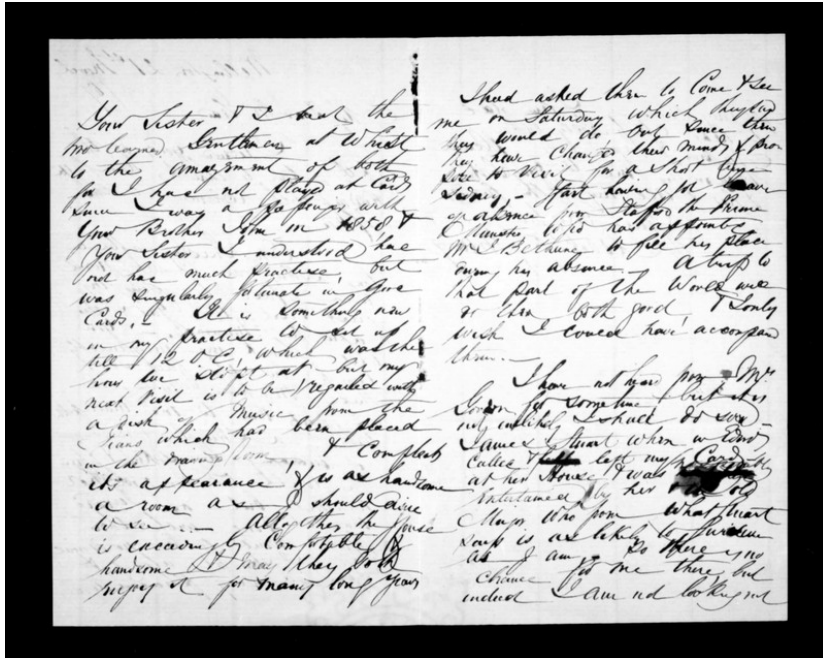 Your Sister & I beat the
two learned Gentlemen at Whist
to the amazement of both
for I have not played at Cards
since I was a passenger with
Your Brother John in 1858 &
Your Sister I understood have
not had much practise, but
was singularly fortunate in give
Cards, - It is something new
in my practise to sit up
till 12 O C, which was the
hour we slept at but my
next visit is to be regaled with
a dish of Music from the
Piano which had been placed
in the drawing room, & Compleats
its appearance & is as handsome
a room as I should desire
to see. - Altogether the House
is exceedingly Comfortable &
handsome & may they both
enjoy it for many long years
I had asked them to Come & see
me on Saturday which they
they would do but since then
they have changed their minds & pro
pose to visit for a short time
Sidney, - Stuart having got leave
of absence from Stafford the Prime
Minister who has appointed
Mr J Bethune to fill his place
during his absence - A trip to
that part of the World will
do them both good, & I only
wish I could have accompand
them. -
I have not heard from Mrs
Gordon for sometime but it is
not unlikely I shall do soon
James Stuart whom
called & left my Card
at her House & was
entertained by her & the old
Major who from what Stuart
says is as likely to survive
as I am - So there is no
chance for me there, but
indeed I am not looking out